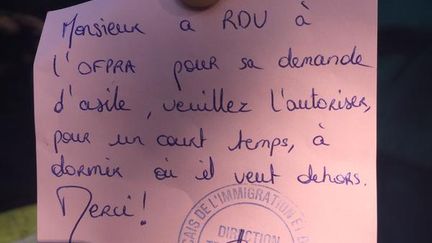 Monsieur a RDV à
l'OFPRA pour sa demande
d'asile, veuillez l'autoriser,
pour un court temps, à
dormir où il veut dehors.
Merci!
ÇAIS DE L'IMMIGRATION ET
DIRECTION